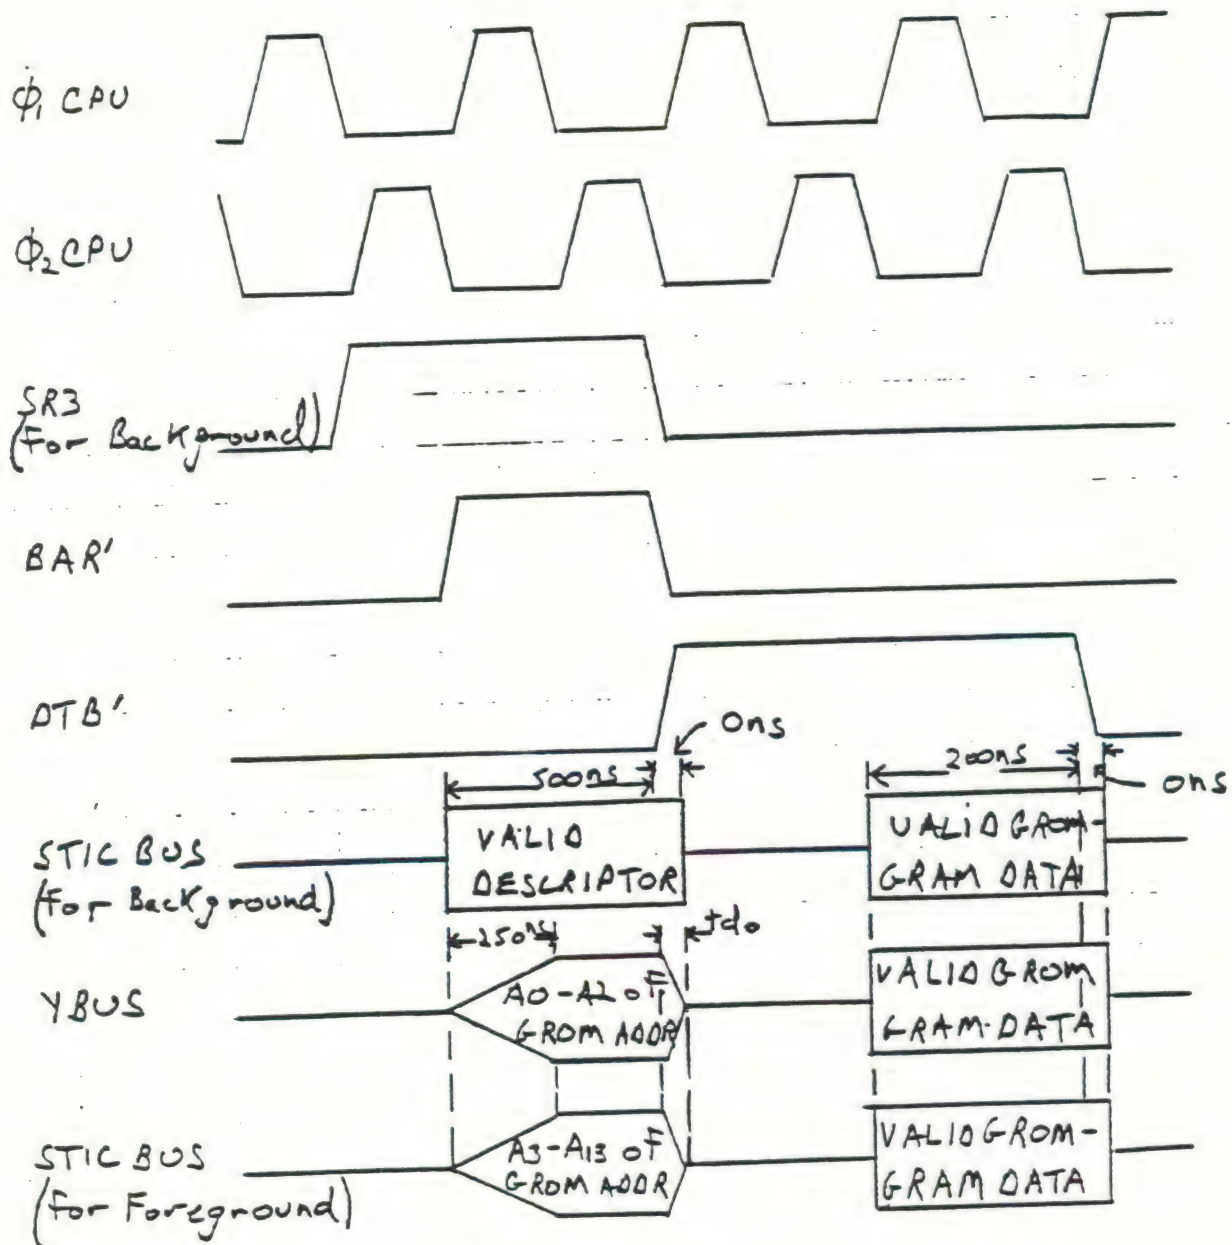 ϕ₁ CPU
ϕ₂ CPU
SR3
(For Background)
BAR'
DTB'
0ns
500ns
200ns
0ns
STIC BUS
(For Background)
VALID
DESCRIPTOR
VALID GROM-
GRAM DATA
250ns
tdo
Y BUS
A0-A2 of
GROM ADDR
VALID GROM
GRAM-DATA
STIC BUS
(For Foreground)
A3-A13 of
GROM ADDR
VALID GROM-
GRAM DATA